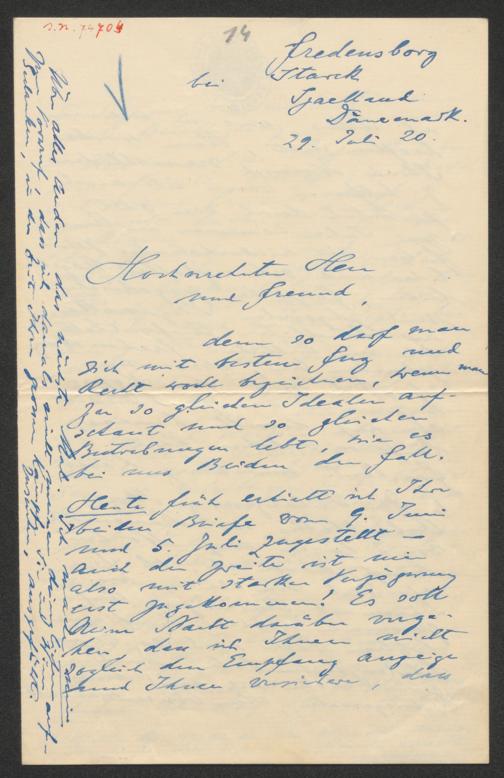 S.N. 74704
14
Fredensborg
bei Starck
Sjaelland
Dänemark.
29. Juli 20.
Hochverehrter Herr
und Freund,
denn so darf man
sich mit bestem Fug und
Recht wohl bezeichnen, wenn man
zu so gleichen Idealen auf-
schaut und so gleichen
Bestrebungen lebt, wie es
bei uns Beiden der Fall.
Heute früh erhielt ich Ihre
beiden Briefe vom 9. Juni
und 5. Juli zugestellt –
auch der zweite ist mir
also mit starker Verzögerung
erst zugekommen! Es soll
keine Nacht darüber verge-
hen, dass ich Ihnen nicht
sogleich den Empfang anzeige
und Ihnen versichere, dass
Von allem Andern das nächste Mal. Ich mache
Vorwurf, dass ich damals nicht
Gedanken, in der Zeit Ihrer grossen Kämpfe